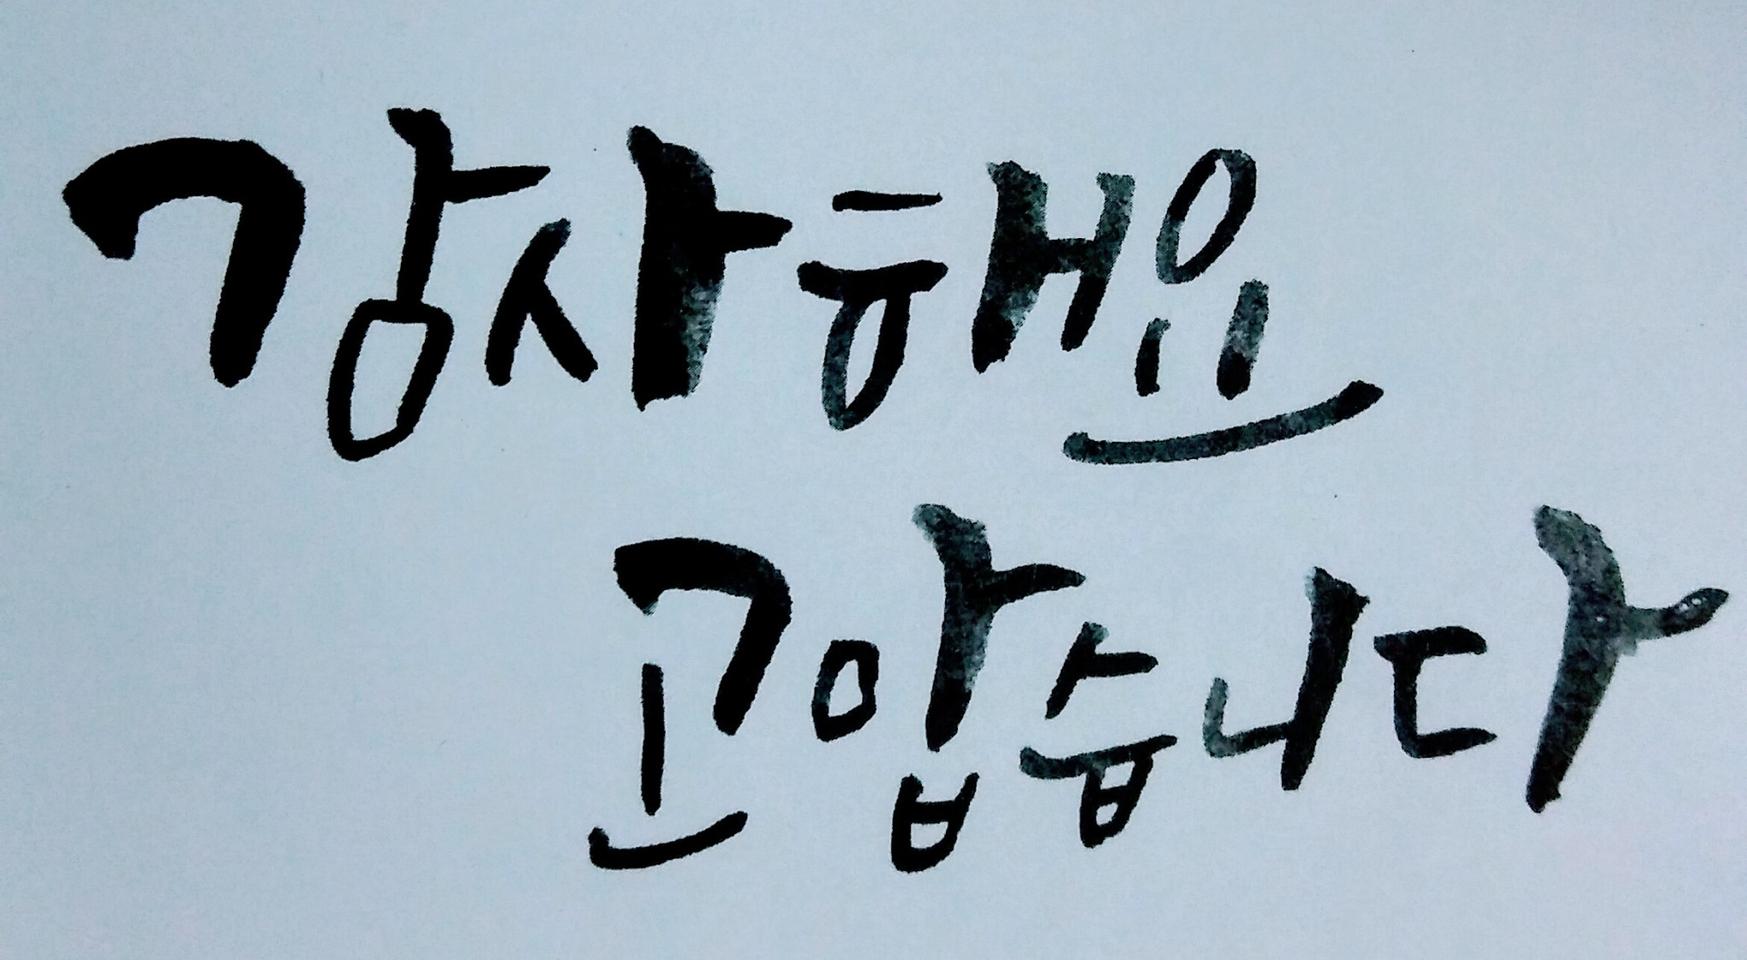 강사해요
고맙습니다